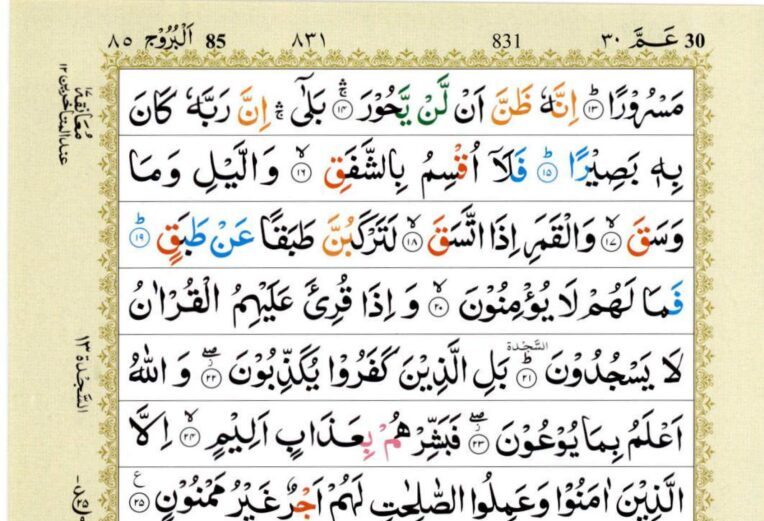 30 عَمَّ ٣٠ 831 ٨٣١ 85 اَلْبُرُوْج ٨٥
مَسْرُوْرًا ؕ ﴿۱۳﴾ اِنَّهٗ ظَنَّ اَنْ لَّنْ يَّحُوْرَ ۚۛ ﴿۱۴﴾ بَلٰۤى ۚۛ اِنَّ رَبَّهٗ كَانَ
بِهٖ بَصِيْرًا ؕ ﴿۱۵﴾ فَلَاۤ اُقْسِمُ بِالشَّفَقِ ۙ ﴿۱۶﴾ وَالَّيْلِ وَمَا
وَسَقَ ۙ ﴿۱۷﴾ وَالْقَمَرِ اِذَا اتَّسَقَ ۙ ﴿۱۸﴾ لَتَرْكَبُنَّ طَبَقًا عَنْ طَبَقٍ ؕ ﴿۱۹﴾
فَمَا لَهُمْ لَا يُؤْمِنُوْنَ ۙ ﴿۲۰﴾ وَ اِذَا قُرِئَ عَلَيْهِمُ الْقُرْاٰنُ
لَا يَسْجُدُوْنَ ؕ ﴿۲۱﴾ السَّجْدَة بَلِ الَّذِيْنَ كَفَرُوْا يُكَذِّبُوْنَ ۖ ﴿۲۲﴾ وَ اللّٰهُ
اَعْلَمُ بِمَا يُوْعُوْنَ ۖ ﴿۲۳﴾ فَبَشِّرْهُمْ بِعَذَابٍ اَلِيْمٍ ۙ ﴿۲۴﴾ اِلَّا
الَّذِيْنَ اٰمَنُوْا وَعَمِلُوا الصّٰلِحٰتِ لَهُمْ اَجْرٌ غَيْرُ مَمْنُوْنٍ ﴿۲۵﴾ ع
مُعَانقة ١٧
عند المتاخرين ١٢
السَّجْدَة ١٣